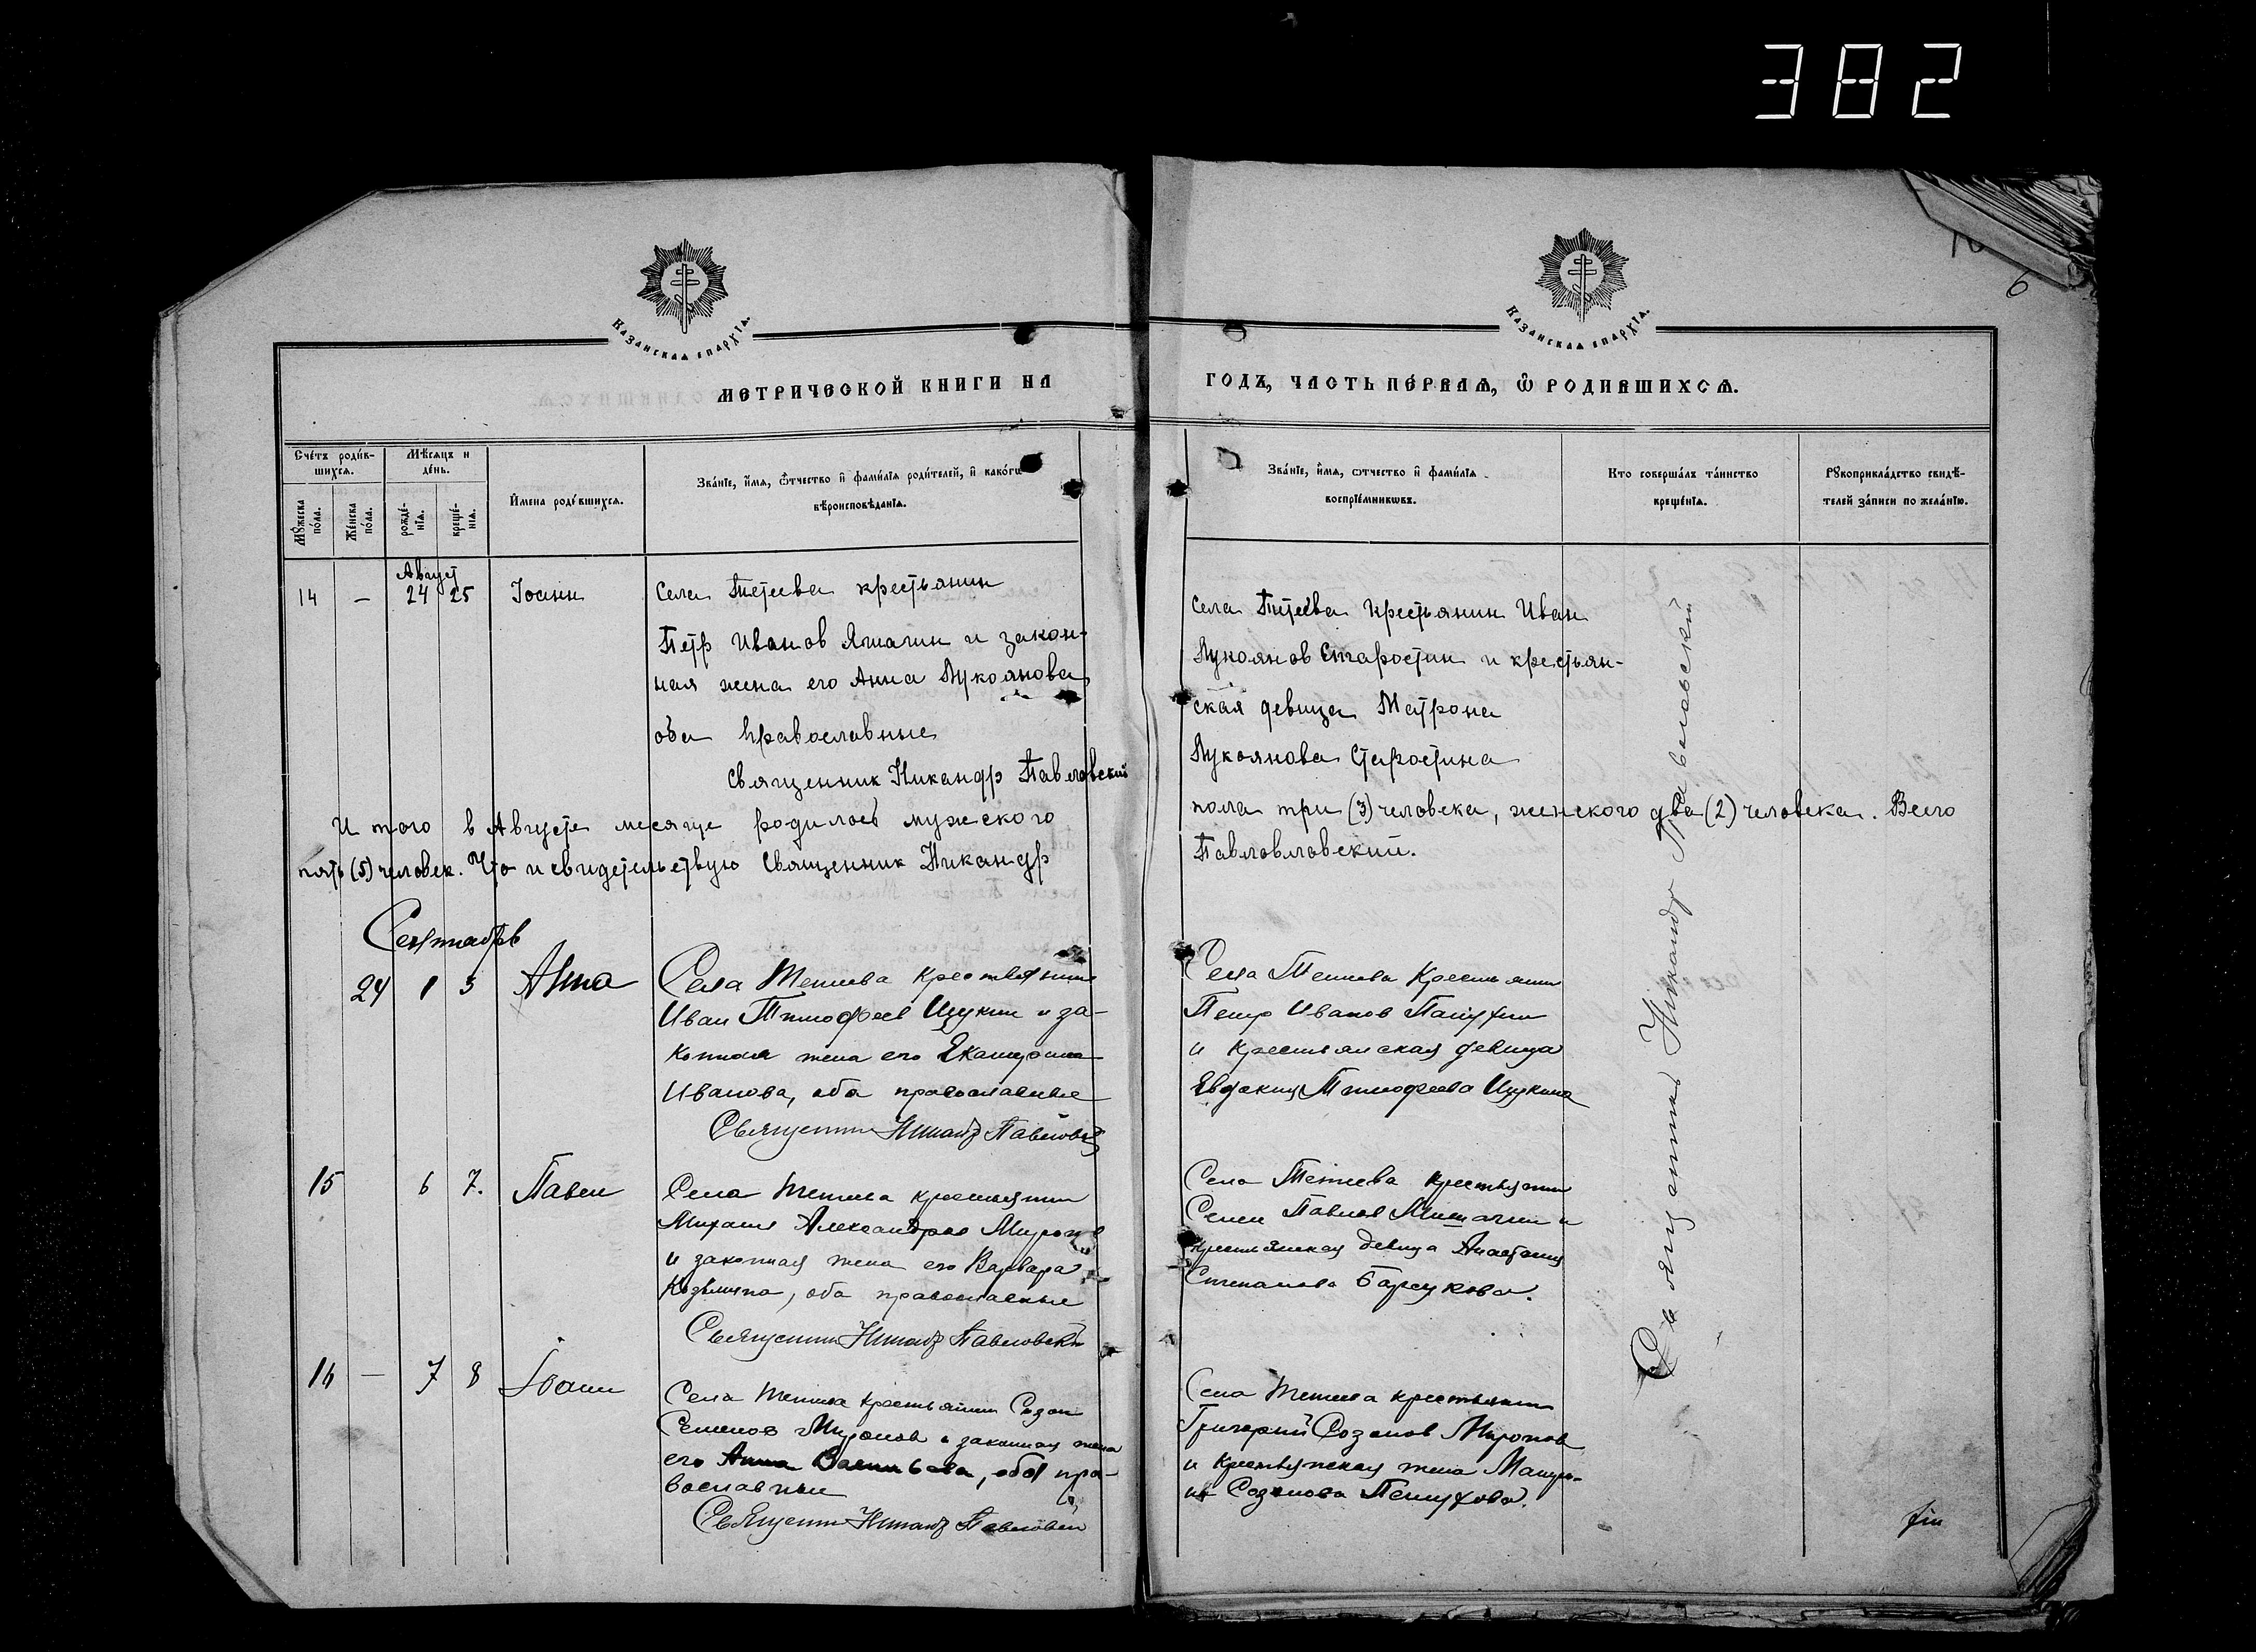 382
6
Казанская епархїа.
Казанская епархїа.
МЕТРИЧЕСКОЙ КНИГИ НА
ГОДЪ, ЧАСТЬ ПЕРВАЯ, Ѿ РОДИВШИХСЯ.
Счетъ родив-
шихся.
Мѣсяцъ и
день.
Мꙋжеска
пола.
Женска
пола.
рожде-
нїя.
креще-
нїя.
Имена родившихся.
Званїе, имя, ѿтчество и фамилїя родителей, и какого
вѣроисповѣданїя.
Званїе, имя, отчество и фамилїя
воспрїемникѡвъ.
Кто совершалъ таинство
крещенїя.
Рꙋкоприкладство свидѣ-
телей записи по желанїю.
Август
14 — 24 25 Іоанн
Села Тетеева крестьянин
Петр Иванов Ямашин и закон-
ная жена его Анна Лукоянова
оба православные
Священник Никандр Павловский
Села Тетеева крестьянин Иван
Лукоянов Старостин и крестьян-
ская девица Матрона
Лукоянова Старостина
Итого в Августе месяце родилось мужского
пола три (3) человека, женского два (2) человека. Всего
пять (5) человек. Что и свидетельствую Священник Никандр
Павловловский.
Сентябрь
24 1 3 Анна
Села Тетеева крестьянин
Иван Тимофеев Щукин и за-
конная жена его Екатерина
Иванова, оба православные
Священник Никандр Павловский
Села Тетеева крестьянин
Петр Иванов Петухин
и крестьянская девица
Евдокия Тимофеева Щукина
15 6 7. Павел
Села Тетеева крестьянин
Михаил Александров Миронов
и законная жена его Варвара
Козьмина, оба православные
Священник Никандр Павловский
Села Тетеева крестьянин
Семен Павлов и
крестьянская девица Анастасия
Степанова Барсукова.
16 — 7 8 Іоанн
Села Тетеева крестьянин Созон
Семенов Миронов и законная жена
его Анна Васильева, оба пра-
вославные
Священник Никандр Павловский
Села Тетеева крестьянин
Григорий Созонов Миронов
и крестьянская жена
Созонова Петухова.
Священник Никандр Павловский